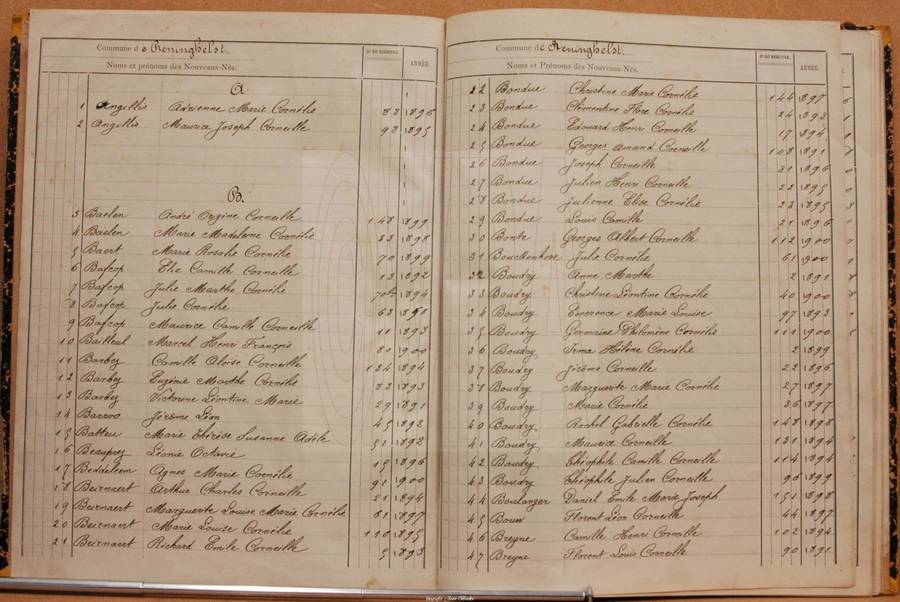 Commune de Reninghelst.
Noms et prénoms des Nouveaux-Nés.
N° DU REGISTRE.
ANNÉE.
A
1 Angillis Adrienne Marie Cornélie 83 1896
2 Angillis Maurice Joseph Corneille 98 1895
B.
3 Baelen André Orgine Corneille 148 1899
4 Baelen Marie Madelame Cornélie 33 1898
5 Baert Marie Rosalie Cornélie 70 1899
6 Bafcop Elie Camille Corneille 13 1892
7 Bafcop Julie Marthe Cornélie 1894
8 Bafcop Julie Cornélie 63
9 Bafcop Maurice Camill Corneille 11 1893
10 Bailleul Marcel Henri François 80 1900
11 Barbez Camille Aloïse Corneille 124 1894
12 Barbez Eugénie Marthe Cornélie 83 1893
13 Barbez Victorine Léontine Marie 29 1891
14 Barroo Jérôme Léon 45 1892
15 Batteu Marie Thérèse Susanne Adèle 51 1892
16 Beauprez Léonie Octavie 15 1896
17 Beddeleem Agnes Marie Cornélie 91 1900
18 Beirnaert Arthur Charles Corneille 21 1894
19 Beirnaert Marguerite Louise Marie Cornélie 81 1897
20 Beirnaert Marie Louise Cornélie 110 1895
21 Beirnaert Richard Emile Corneille 5 1893
Commune de Reninghelst.
Noms et Prénoms des Nouveaux-Nés.
N° DU REGISTRE.
ANNÉE.
22 Bondue Christine Marie Cornélie 144 1897
23 Bondue Clémentine Flore Cornélie 24 1893
24 Bondue Edouard Henri Corneille 17 1894
25 Bondue Georges Amand Corneille 108 1891
26 Bondue Joseph Corneille 31 1896
27 Bondue Julien Henri Corneille 22 1895
28 Bondue Julienne Elise Cornélie 23 1895
29 Bondue Louis Camille 21 1896
30 Bonte Georges Albert Corneille 112 1900
31 Bouckenhove Julie Cornélie 61 1900
32 Boudry Anne Marthe 2 1891
33 Boudry Christine Léontine Cornélie 40 1900
34 Boudry Emerence Marie Louise 97 1893
35 Boudry Germaine Philomène Cornélie 111 1900
36 Boudry Irma Hélène Cornélie 2 1899
37 Boudry Jérôme Corneille 22 1896
38 Boudry Marguerite Marie Cornélie 27 1897
39 Boudry Marie Cornélie 26 1897
40 Boudry Rachel Gabrielle Cornélie 148 1898
41 Boudry Maurice Corneille 131 1894
42 Boudry Théophile Camille Corneille 114 1894
43 Boudry Théophile Julien Corneille 96 1899
44 Boulanger Daniel Emile Marie Joseph 151 1898
45 Bouw Florent Léon Corneille 44 1897
46 Breyne Camille Henri Corneille 102 1894
47 Breyne Florent Louis Corneille 90 1891